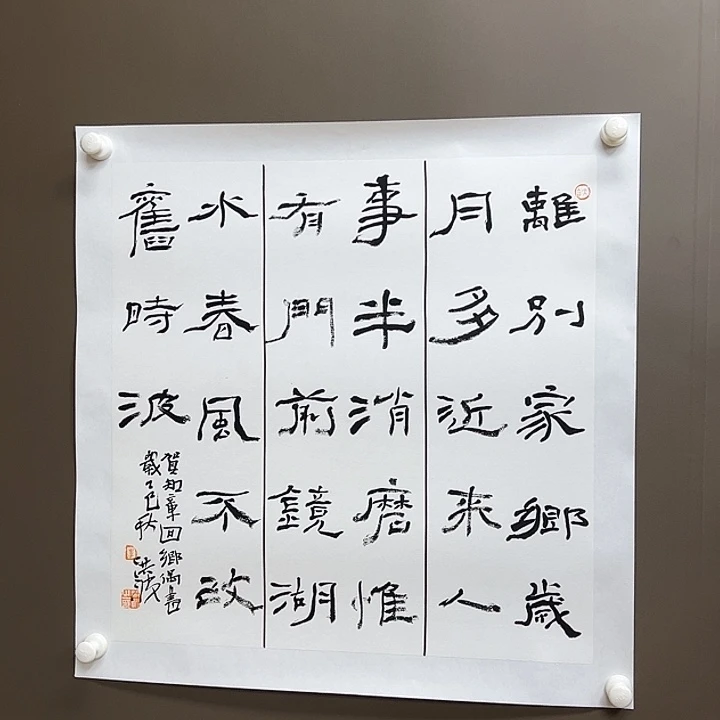 離別家鄉歲
月多近来人
事半消磨惟
有門前鏡湖
水春風不改
舊時波
賀知章回鄉偶書
歲乙巳秋